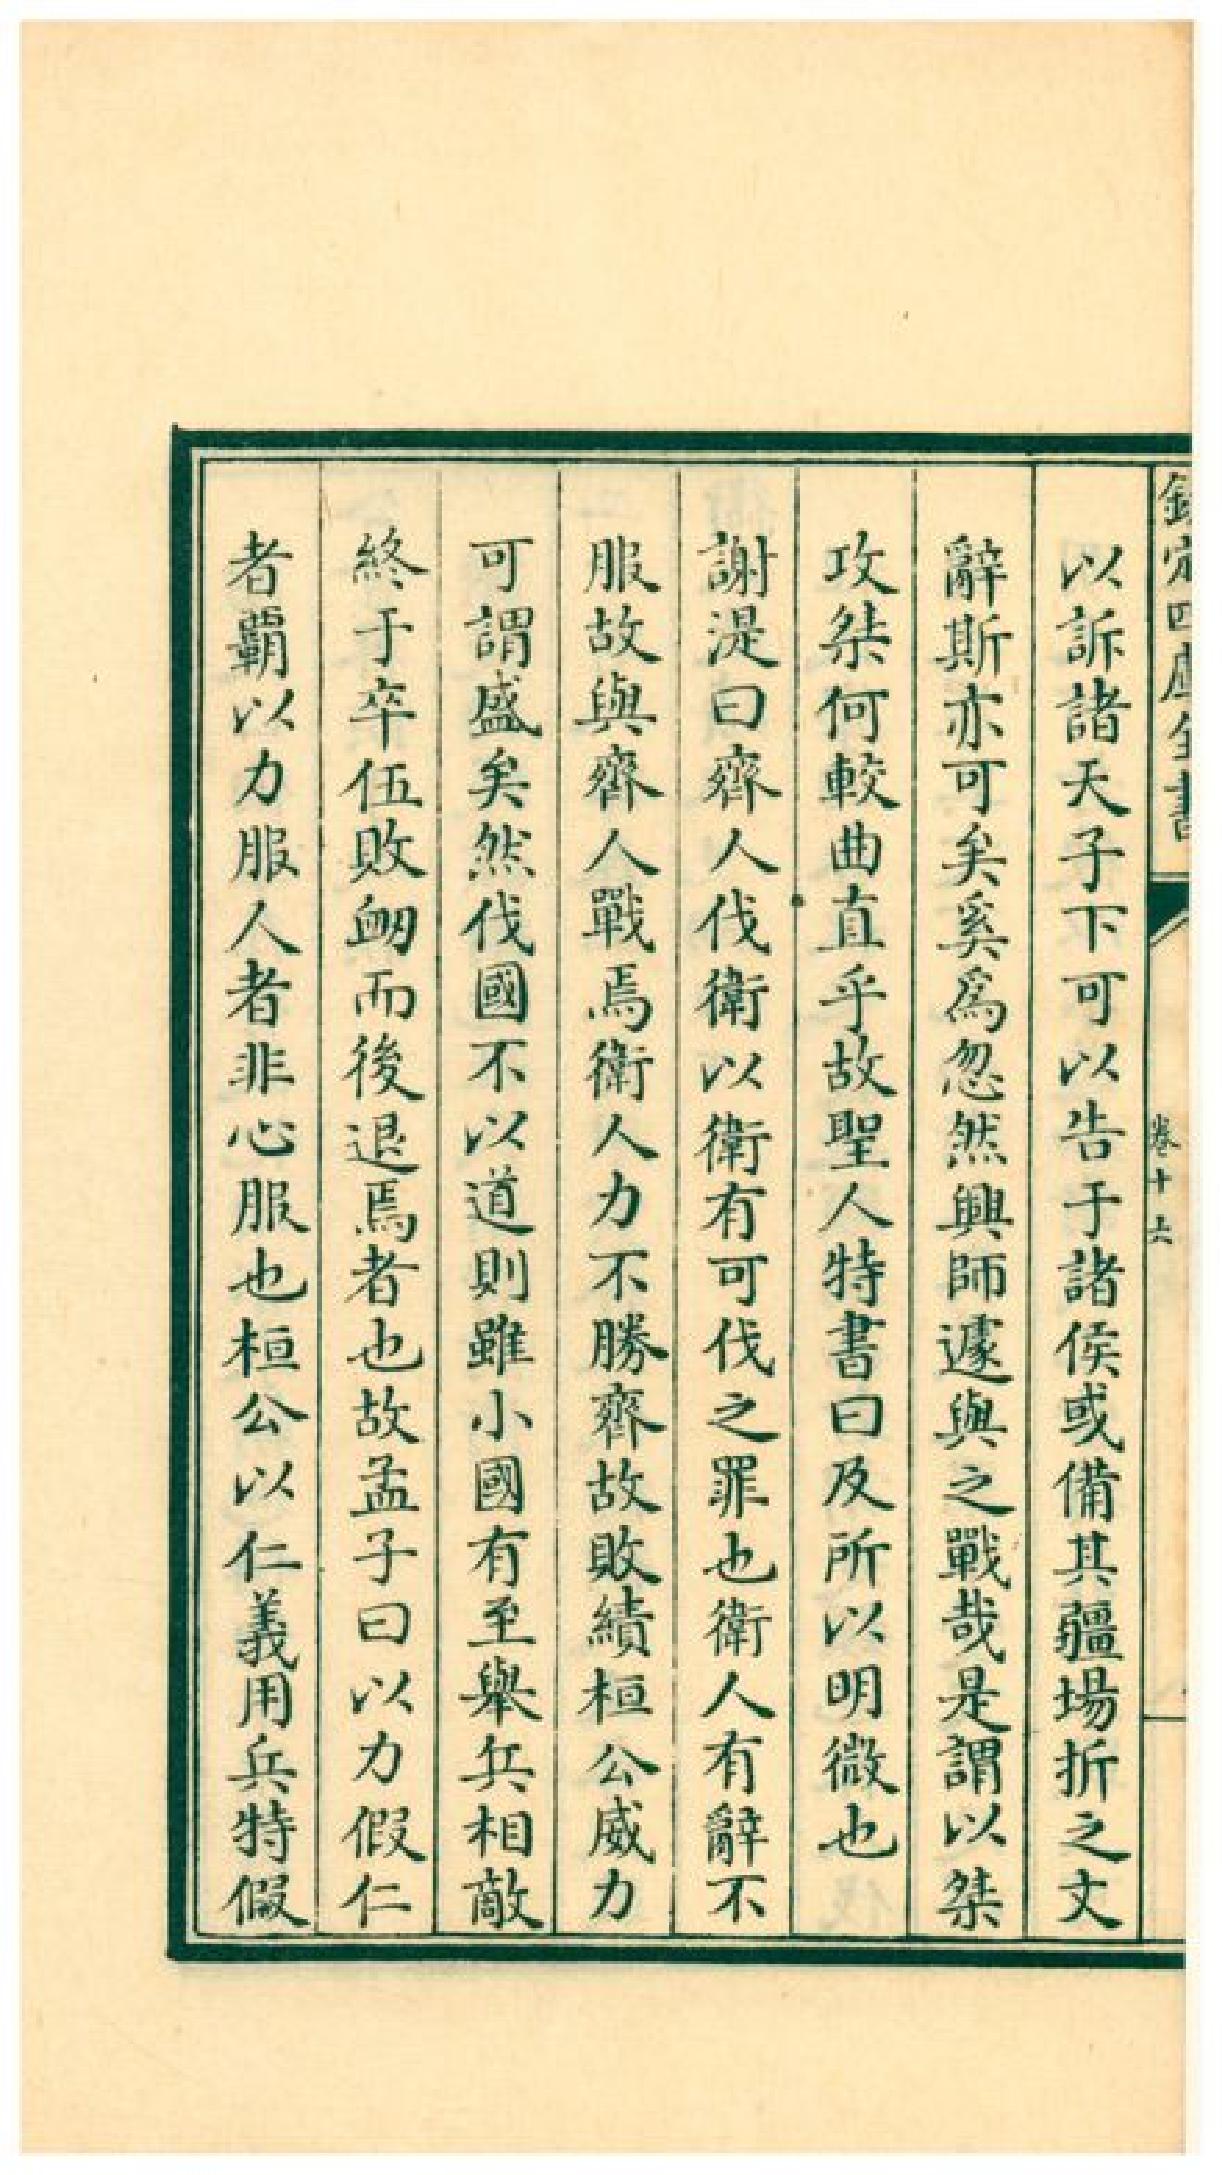 欽定四庫全書
卷十六
以訴諸天子下可以告于諸侯或備其疆場折之文
辭斯亦可矣奚爲忽然興師遽與之戰哉是謂以桀
攻桀何較曲直乎故聖人特書曰及所以明微也
謝湜曰齊人伐衛以衛有可伐之罪也衛人有辭不
服故與齊人戰焉衛人力不勝齊故敗績桓公威力
可謂盛矣然伐國不以道則雖小國有至舉兵相敵
終于卒伍敗衂而後退焉者也故孟子曰以力假仁
者覇以力服人者非心服也桓公以仁義用兵特假